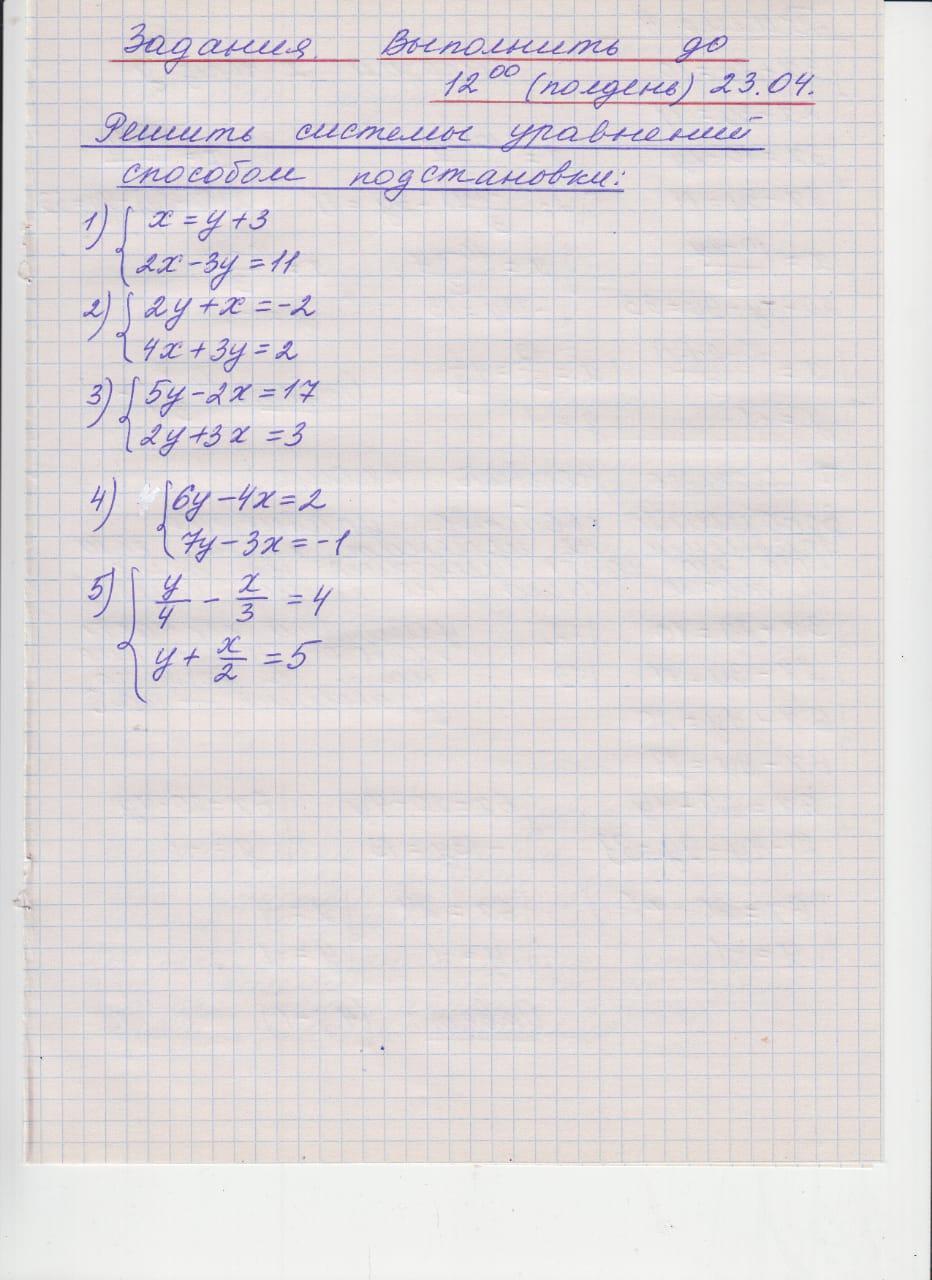 Задания. Выполнить до
12⁰⁰ (полдень) 23.04.
Решить системы уравнений
способом подстановки:
1) { x = y + 3
2x - 3y = 11
2) { 2y + x = -2
4x + 3y = 2
3) { 5y - 2x = 17
2y + 3x = 3
4) { 6y - 4x = 2
7y - 3x = -1
5) { y/4 - x/3 = 4
y + x/2 = 5